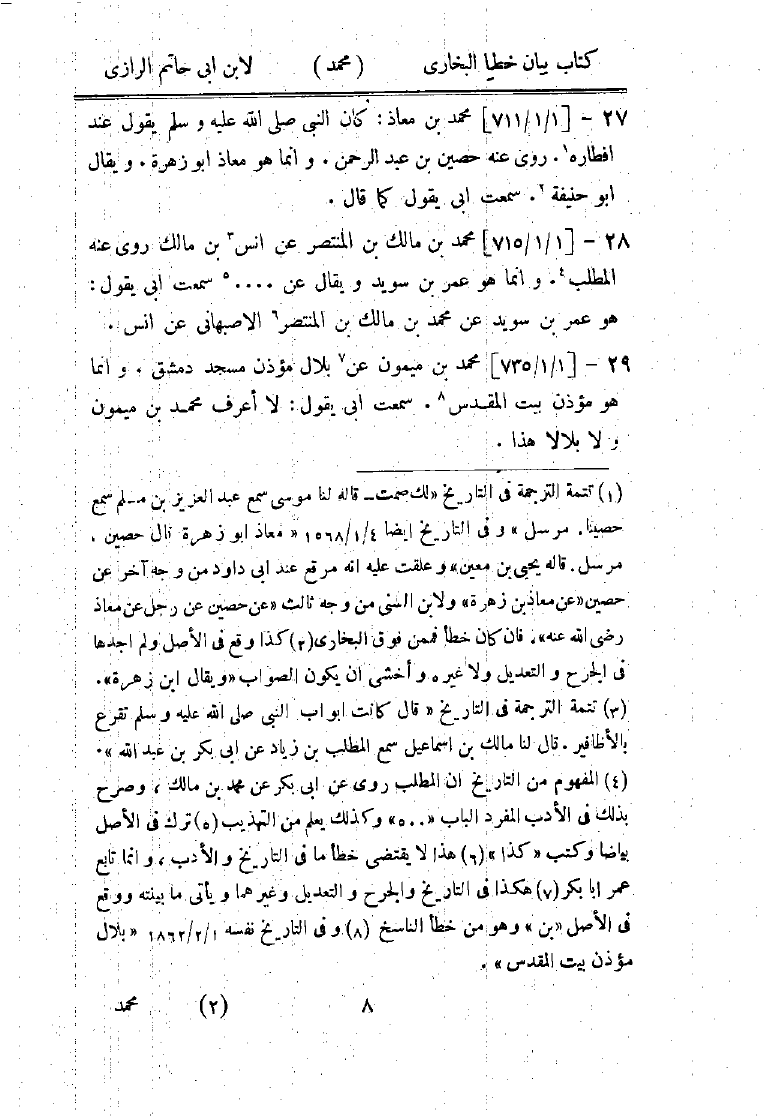 كتاب بيان خطيا البخارى (محمد) لابن ابى حاتم الرازى
٢٧ - [٧١١/١/١] محمد بن معاذ: كان النبى صلى الله عليه و سلم يقول عند
افطاره١. روى عنه حصين بن عبد الرحمن. و انما هو معاذ ابو زهرة. و يقال
ابو حنيفة٢. سمعت ابى يقول كما قال.
٢٨ - [٧١٥/١/١] محمد بن مالك بن المنتصر عن انس٣ بن مالك روى عنه
المطلب٤. و انما هو عمر بن سويد و يقال عن ....٥ سمعت ابى يقول:
هو عمر بن سويد عن محمد بن مالك بن المنتصر٦ الاصبهانى عن انس.
٢٩ - [٧٣٥/١/١] محمد بن ميمون عن٧ بلال مؤذن مسجد دمشق. و انما
هو مؤذن بيت المقدس٨. سمعت ابى يقول: لا أعرف محمد بن ميمون
و لا بلالا هذا.
(١) تتمة الترجمة فى التاريخ «لك صمت ـ قاله لنا موسى سمع عبد العزيز بن مسلم سمع
حصينا. مرسل» و فى التاريخ ايضا ١٥٦٨/١/٤ «معاذ ابو زهرة قال حصين.
مرسل. قاله يحيى بن معين» و علقت عليه انه مرقع عند ابى داود من وجه آخر عن
حصين «عن معاذ بن زهرة» ولابن السنى من وجه ثالث «عن حصين عن رجل عن معاذ
رضى الله عنه»، فان كان خطأ فمن فوق البخارى (٢) كذا وقع فى الأصل ولم اجدها
فى الجرح و التعديل ولا غيره و أخشى ان يكون الصواب «ويقال ابن زهرة».
(٣) تتمة الترجمة فى التاريخ «قال كانت ابواب النبى صلى الله عليه و سلم تقرع
بالأظافير. قال لنا مالك بن اسماعيل سمع المطلب بن زياد عن ابى بكر بن عبد الله».
(٤) المفهوم من التاريخ ان المطلب روى عن ابى بكر عن محمد بن مالك، وصرح
بذلك فى الأدب المفرد الباب «٥٠٠» وكذلك يعلم من التهذيب (٥) ترك فى الأصل
بياضا وكتب «كذا» (٦) هذا لا يقتضى خطأ ما فى التاريخ و الأدب، و انما تابع
عمر ابا بكر (٧) هكذا فى التاريخ والجرح و التعديل وغيرهما و يأتى ما بينته ووقع
فى الأصل «بن» وهو من خطأ الناسخ (٨) و فى التاريخ نفسه ١٨٦٢/٢/١ «بلال
مؤذن بيت المقدس».
٨ (٢) محمد